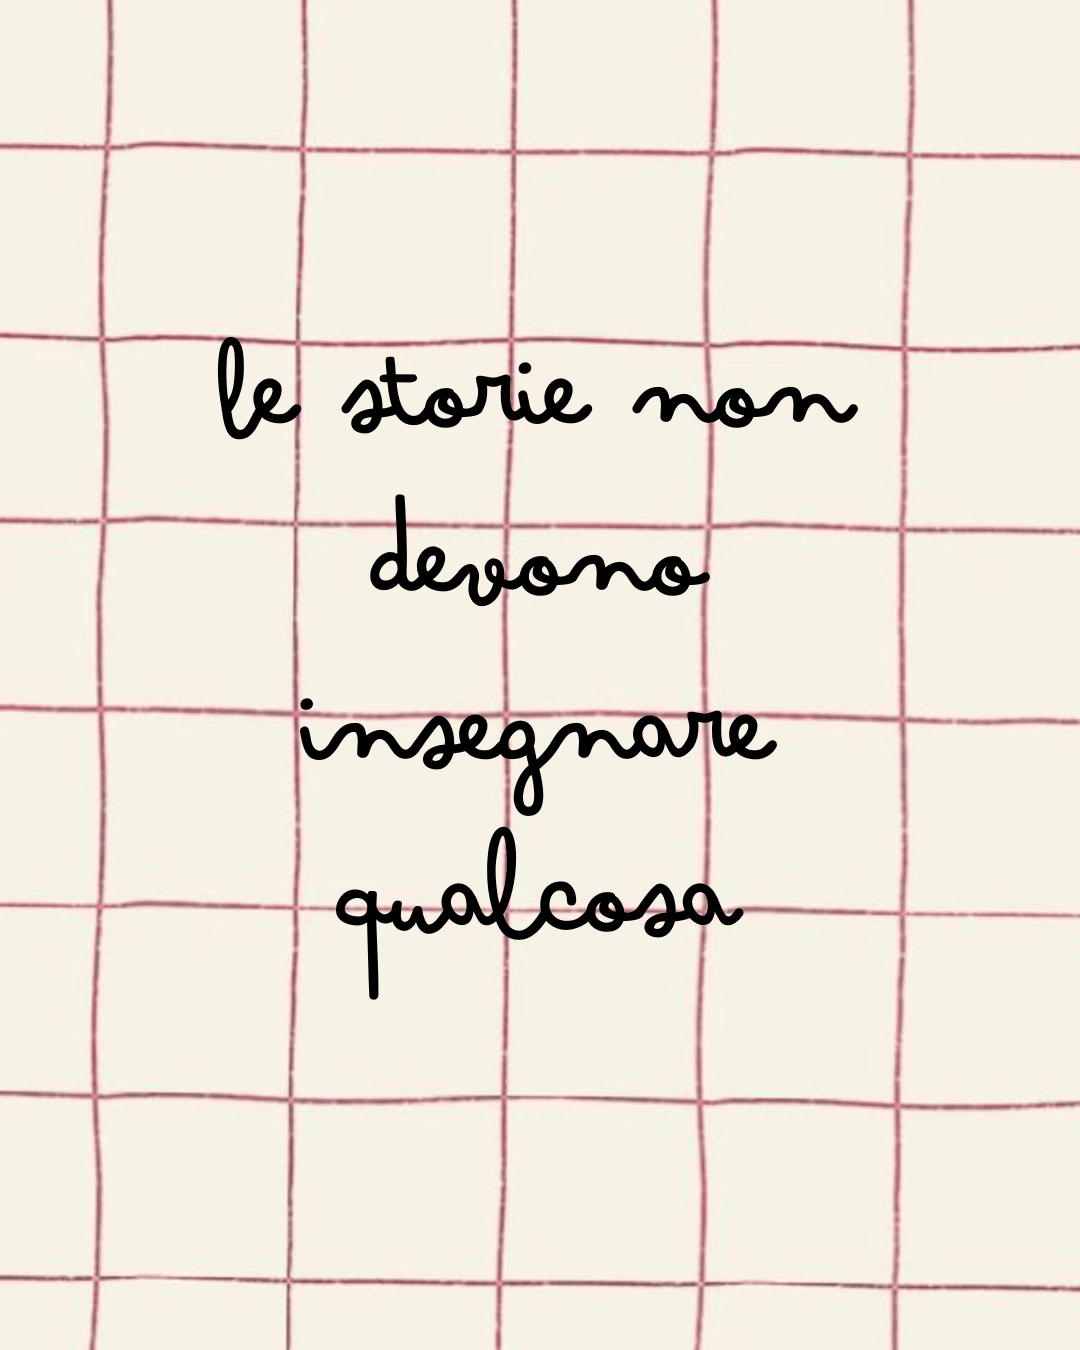 le storie non
devono
insegnare
qualcosa